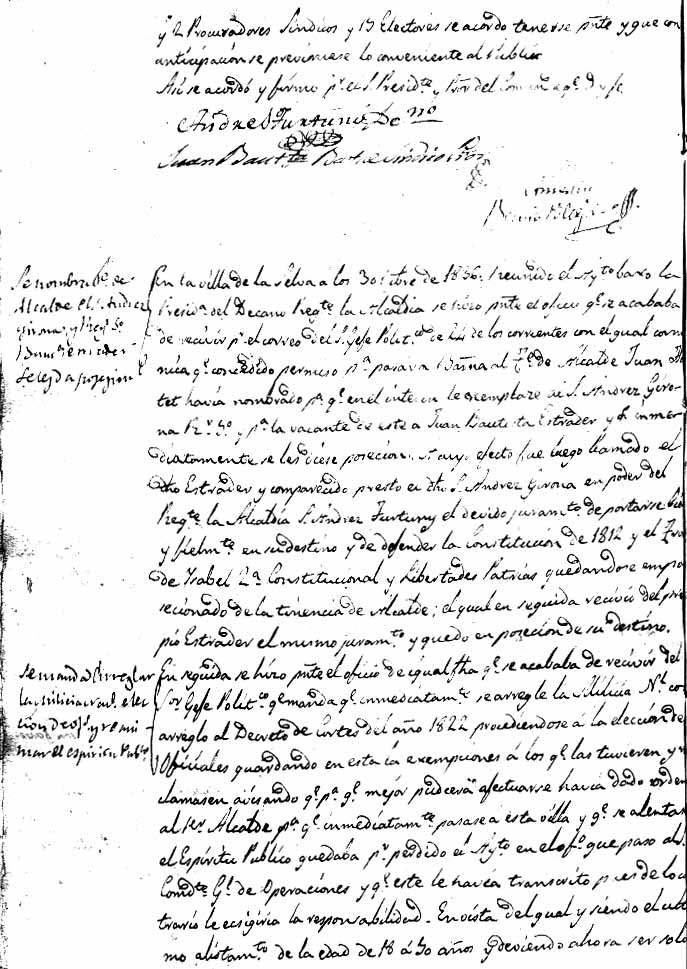 y 2 Procuradores Sindicos y 13 Electores se acordo tenerse pnte y que con
anticipacion se previniese lo conveniente al Publico
Asi se acordó y firmo pr el Sr Presidte y del Comun de q.e doy fe
Andres Furtuño De no
Juan Bautta Sindico
En la villa de la Selva á los 30 8bre de 1836. reunido el Ayto baxo la
Presida del Decano Regte la Alcaldia se hizo pnte el oficio qe se acababa
de recivir pr el correo del Sr Gefe Politco de 24 de los corrientes con el qual comu
nica qe concedido permiso pa pasar a Barna al Te de Alcalde Juan
tet havia nombrado pa qe en el interin le reemplaze á Sr Andrez Giro-
na Rr 3o y pa la vacante de este a Juan Bautista Estrader y qe inme
diatamente se les diese posecion. A cuyo efecto fue luego llamado el
dho Estrader y comparecido presto el dho Sr Andrez Girona en poder del
Regte la Alcaldia Sr Andrez Furtuny el devido juramto de portarse bien
y fielmte en su destino y de defender la Constitución de 1812 y el Tro
de Isabel 2a Constitucional y Libertades Patrias quedandose empo
secionado de la tinencia de Alcalde; el qual en seguida recivió del pro
pio Estrader el mismo juramto y quedo en posecion de su destino.
Se nombra Te de
Alcalde el Sr Andrez
Girona y Regr 3o
Bauta Estrader
Se les da posezion
En seguida se hizo pnte el oficio de igual fha qe se acababa de recivir del
Sor Gefe Politco qe manda qe inmediatamte se arregle la Milicia Nl con
arreglo al Decreto de Cortes del año 1822 procediendose á la elección de
Oficiales guardando en esta la exempciones á los qe las tuvieren y re
clamasen avisando qe pa qe mejor pudiera efectuarse havia dado orden
al 1er Alcalde pa qe inmediatamte pasase a esta villa y qe se alentase
el Espiritu Publico quedaba pr perdido el Ayto en el ofo que paso al Sr
Comdte Gl de Operaciones y qe este le havia transcrito pues de lo con
trario le ecsigiria la responsabilidad. En vista del qual y siendo el ulti
mo alistamto de la edad de 18 á 50 años y deviendo ahora ser solo
Se manda arreglar
la Milicia Nacl elec
cion de ofs y reani
mar el espiritu Pubco